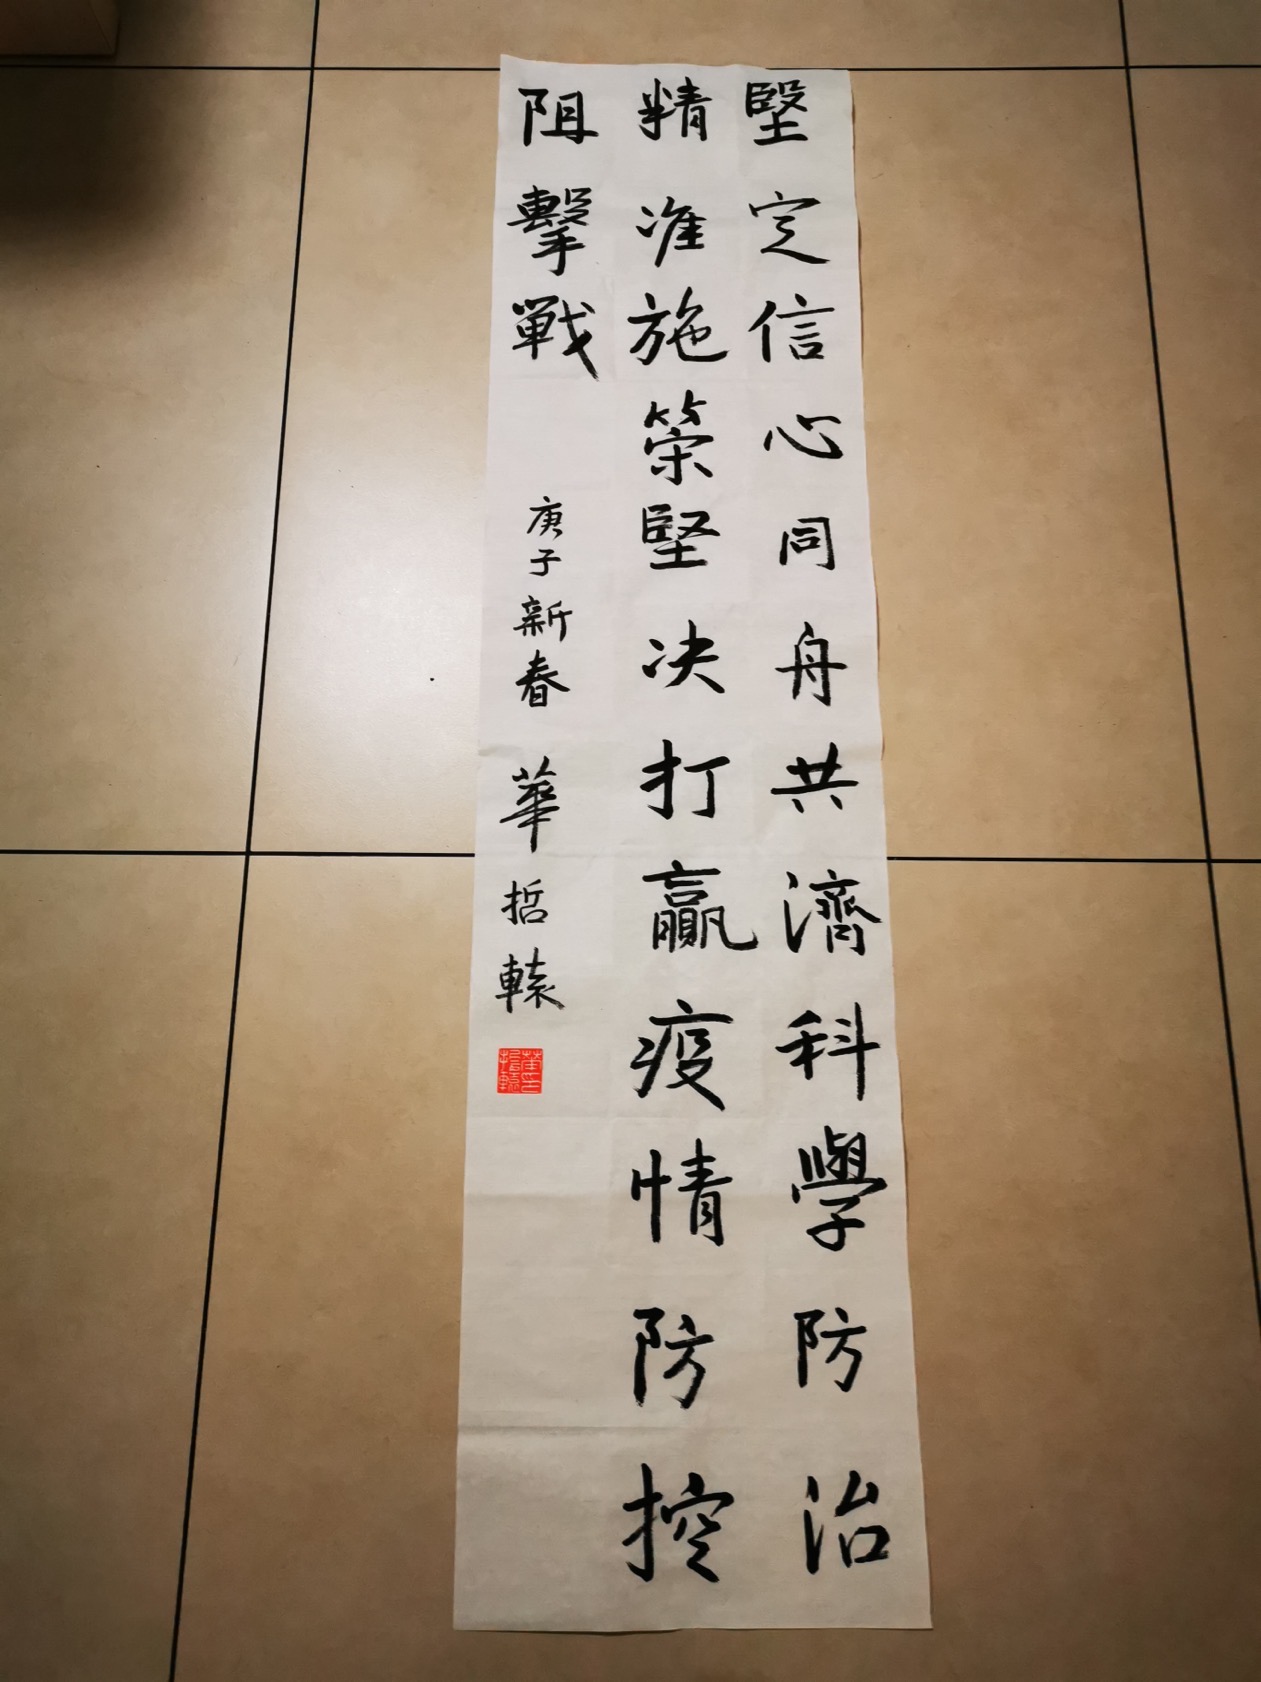 堅定信心同舟共濟科學防治
精准施策堅决打贏疫情防控
阻擊戰
庚子新春 華哲轅